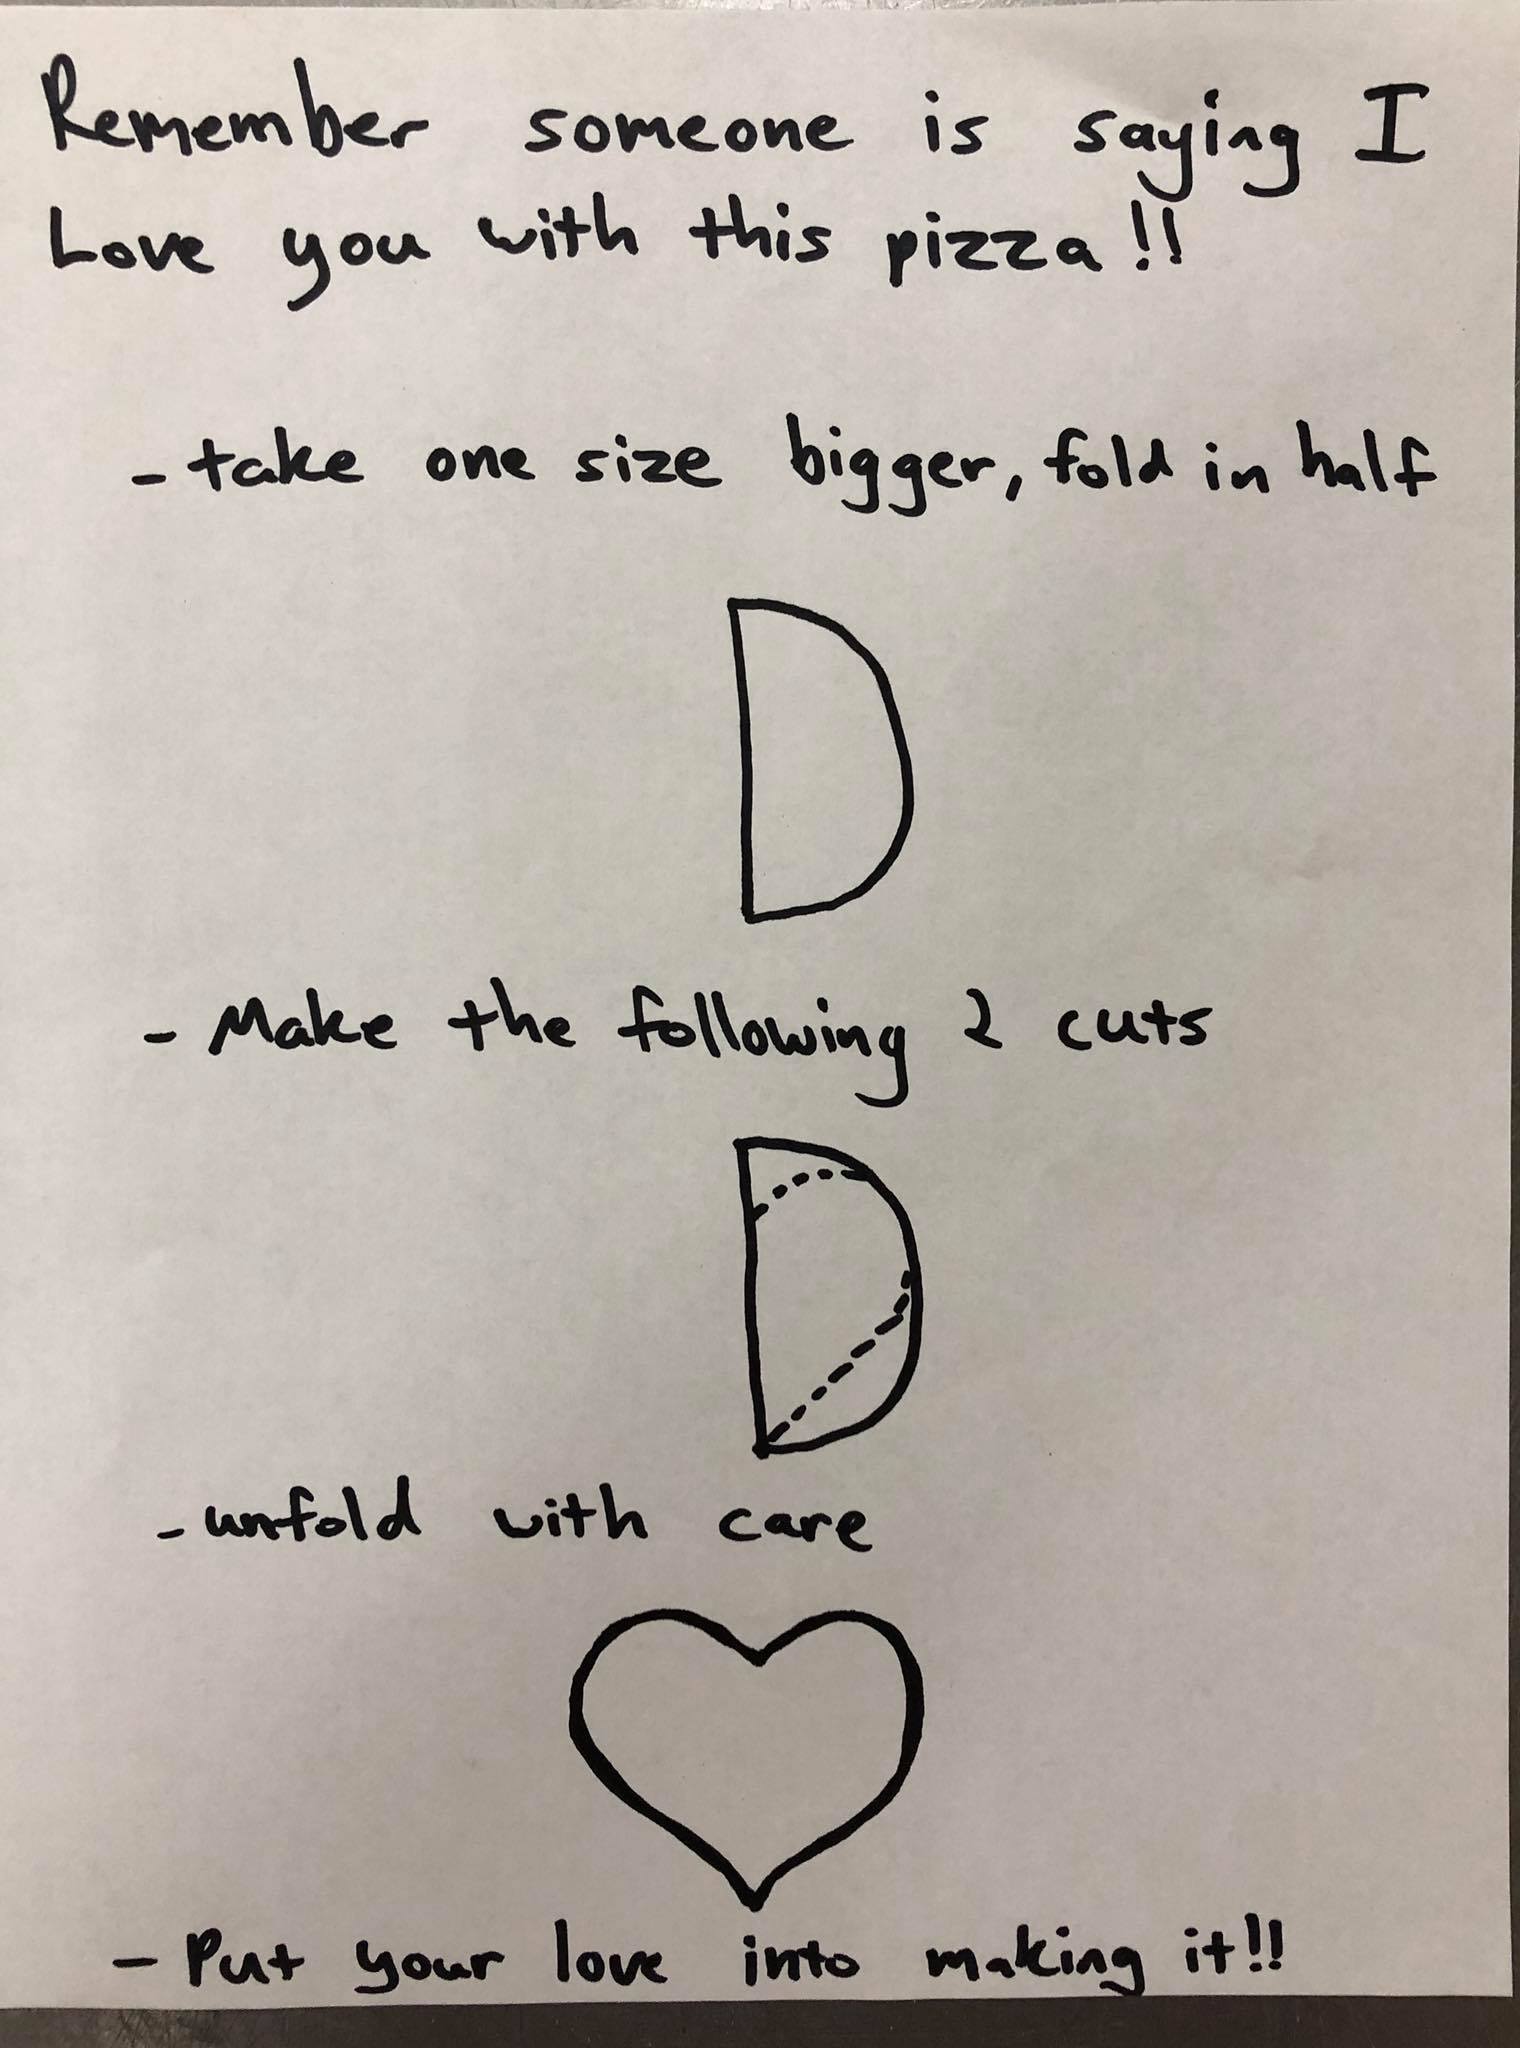 Remember someone is saying I
Love you with this pizza!!
- take one size bigger, fold in half
- Make the following 2 cuts
- unfold with care
- Put your love into making it!!